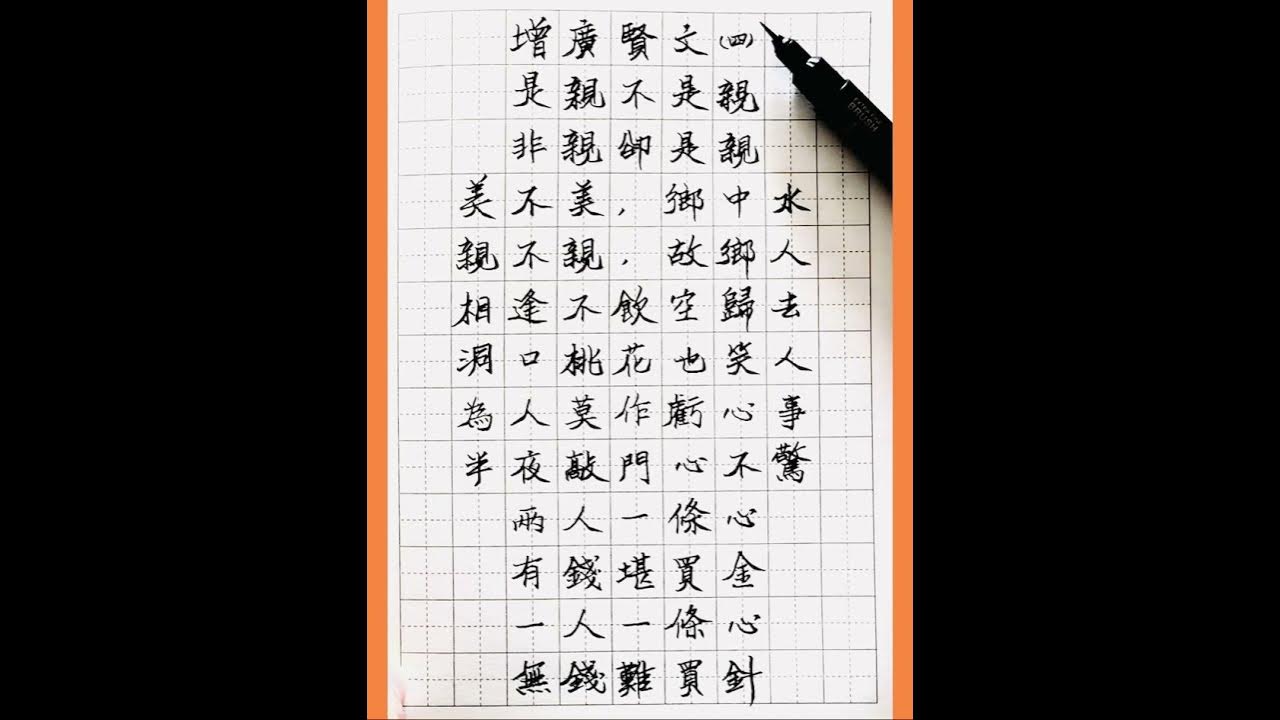 增廣賢文(四)
是親不是親
非親卻是親
美不美,鄉中水
親不親,故鄉人
相逢不飲空歸去
洞口桃花也笑人
為人莫作虧心事
半夜敲門心不驚
兩人一條心
有錢堪買金
一人一條心
無錢難買針
BRUSH